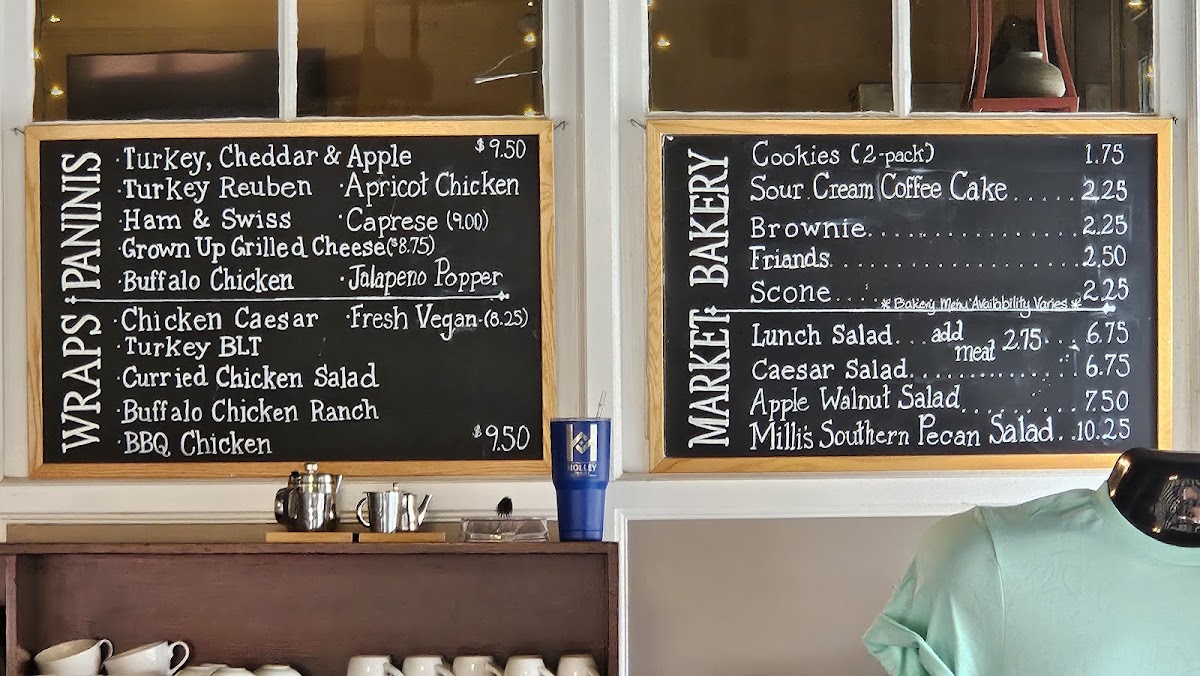 PANINIS
·Turkey, Cheddar & Apple $9.50
·Turkey Reuben ·Apricot Chicken
·Ham & Swiss ·Caprese (9.00)
·Grown Up Grilled Cheese ($8.75)
·Buffalo Chicken ·Jalapeno Popper
WRAPS
·Chicken Caesar ·Fresh Vegan-(8.25)
·Turkey BLT
·Curried Chicken Salad
·Buffalo Chicken Ranch
·BBQ Chicken $9.50
HOLLEY
BAKERY
Cookies (2-pack) 1.75
Sour Cream Coffee Cake..... 2.25
Brownie............. 2.25
Friands............... 2.50
Scone.... 2.25
* Bakery Menu Availability Varies *
MARKET
Lunch Salad... add meat 2.75... 6.75
Caesar Salad............. 6.75
Apple Walnut Salad......... 7.50
Milli's Southern Pecan Salad.. 10.25